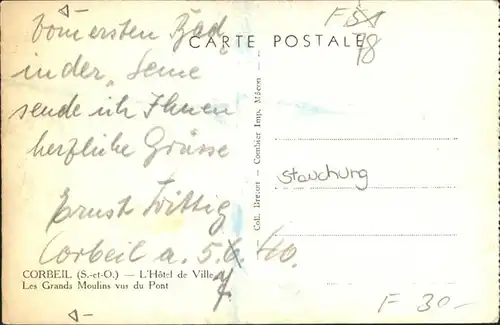 Vom ersten Bad
in der Seine
sende ich Ihnen
herzliche Grüsse
Ernst Wittig
Corbeil a. 5.6.40.
7
CORBEIL (S.-et-O.) — L'Hôtel de Ville
Les Grands Moulins vus du Pont
CARTE POSTALE
F 51
78
Coll. Bréger — Combier Imp. Mâcon
Stauchung
F 30-